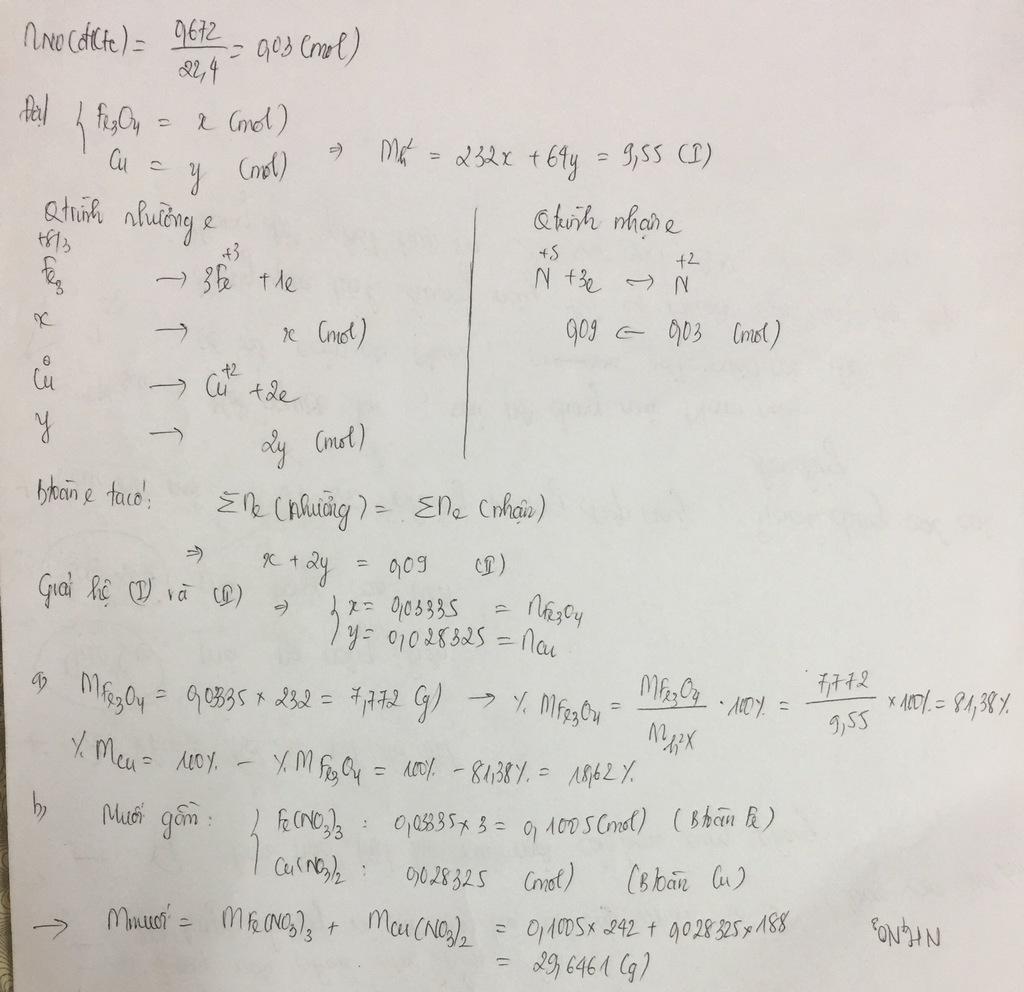 nNO(đktc) = 0,672/22,4 = 0,03 (mol)
Đặt { Fe3O4 = x (mol)
Cu = y (mol) ⇒ mhh = 232x + 64y = 9,55 (I)
Qtrình nhường e
+8/3 +3
Fe3 → 3Fe + 1e
x → x (mol)
0 +2
Cu → Cu + 2e
y → 2y (mol)
Qtrình nhận e
+5 +2
N + 3e → N
0,09 ← 0,03 (mol)
Btoàn e ta có: Σne (nhường) = Σne (nhận)
⇒ x + 2y = 0,09 (II)
Giải hệ (I) và (II) ⇒ { x = 0,03335 = nFe3O4
y = 0,028325 = nCu
a) MFe3O4 = 0,03335 × 232 = 7,772 (g) → % MFe3O4 = MFe3O4/Mh²X · 100% = 7,772/9,55 × 100% = 81,38%
% MCu = 100% - % MFe3O4 = 100% - 81,38% = 18,62%
b) Muối gồm: { Fe(NO3)3 : 0,03335 × 3 = 0,1005 (mol) (Btoàn Fe)
Cu(NO3)2 : 0,028325 (mol) (Btoàn Cu)
→ Mmuối = MFe(NO3)3 + MCu(NO3)2 = 0,1005 × 242 + 0,028325 × 188
= 29,6461 (g)
NH4NO3